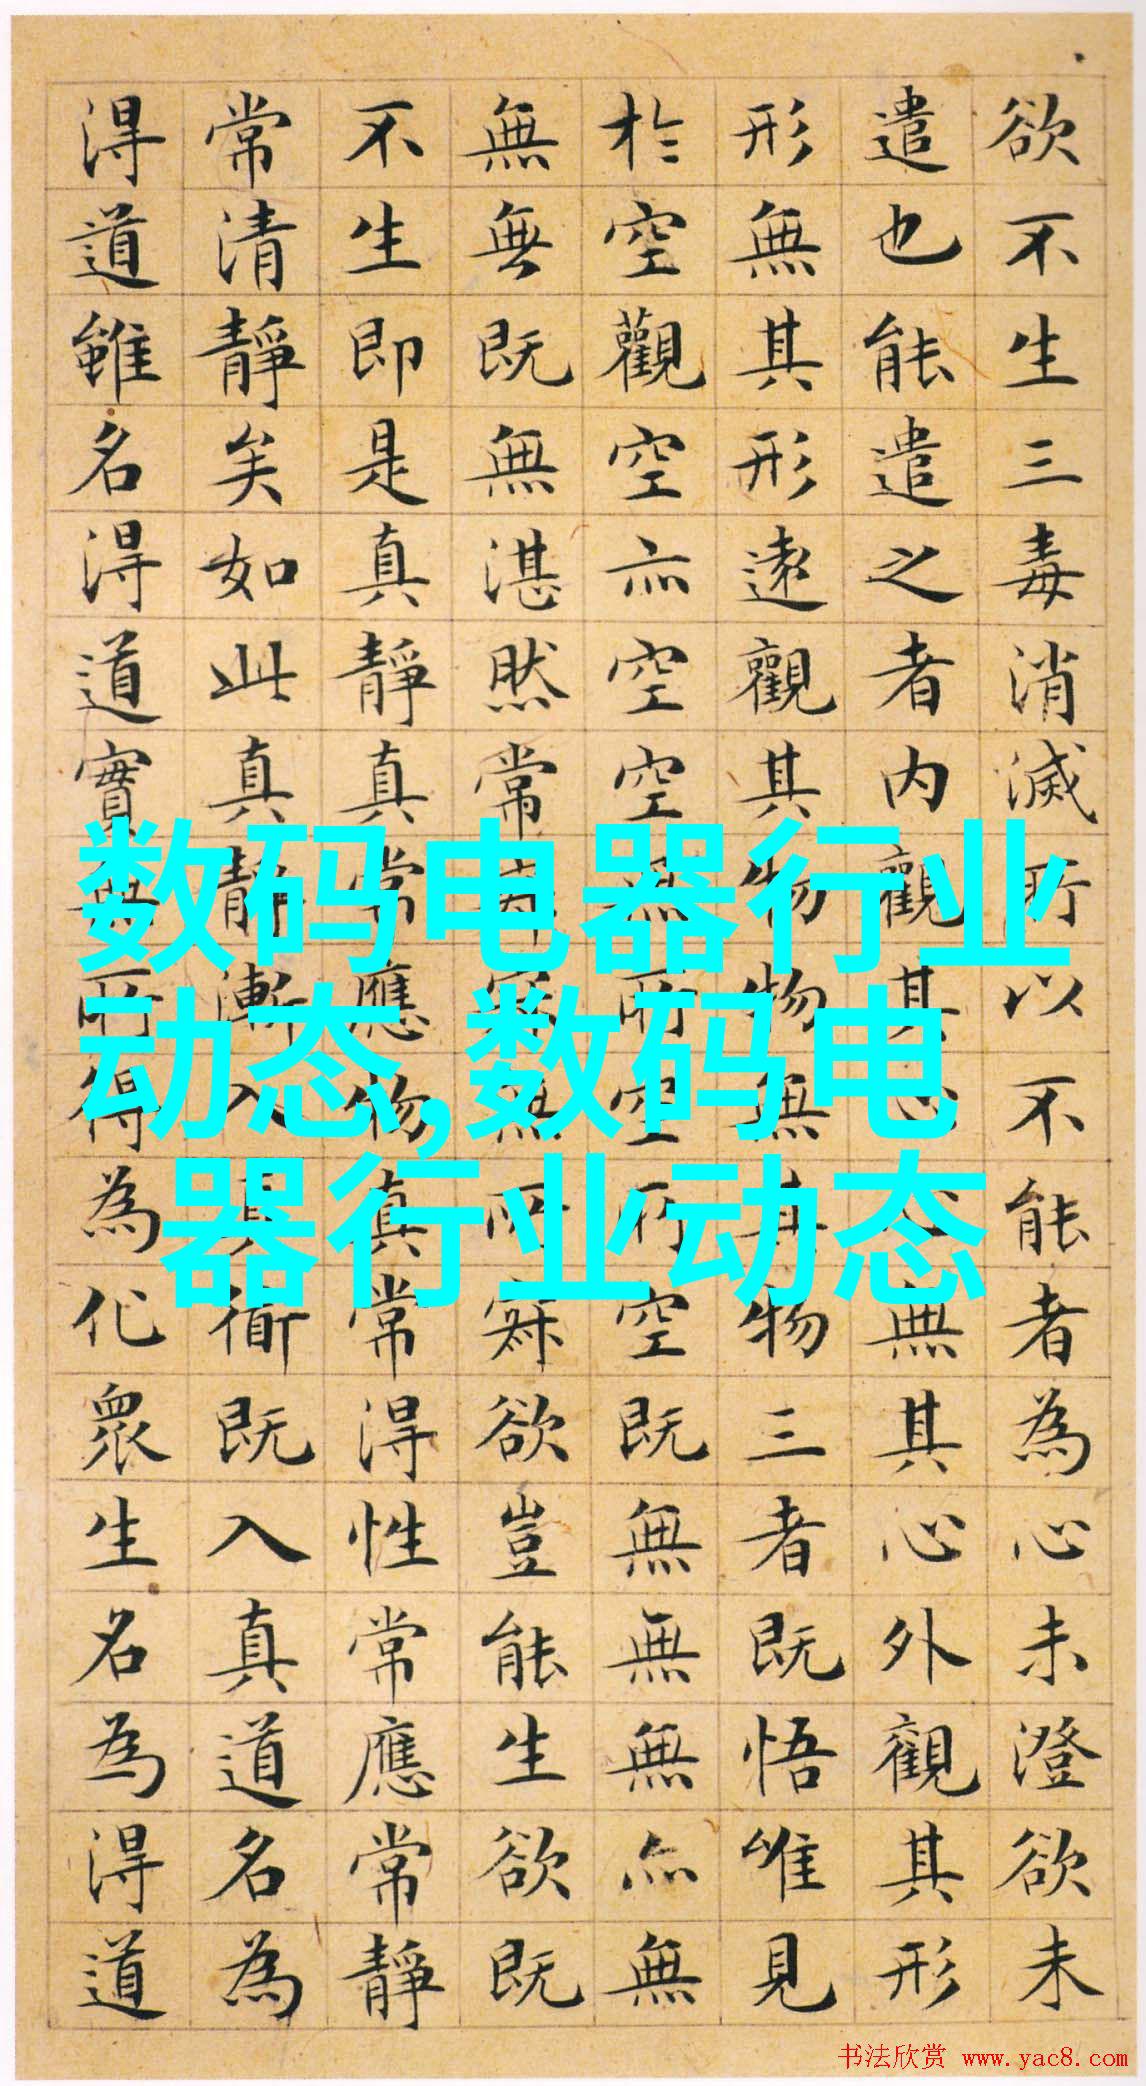 欲不生三毒消滅所以不能者為心未澄欲未
遣也能遣之者内觀其心心無其心外觀其形
形無其形遠觀其物物無其物三者既悟唯見
於空觀空亦空空無所空所空既無無無亦無
無無既無湛然常寂寂無所寂欲豈能生欲既
不生即是真靜真常應物真常得性常應常靜
常清靜矣如此真靜漸入真衜既入真道名為
得道雖名得道實無所得為化眾生名為得道
数码电器行业
动态,数码电
器行业动态
书法欣赏 www.yac8.com